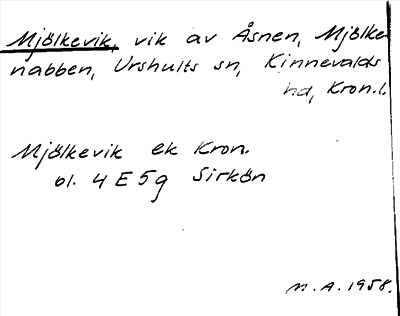 Mjölkevik, vik av Åsnen, Mjölke-
nabben, Urshults sn, Kinnevalds
hd, Kron.l.
Mjölkevik ek Kron.
bl. 4 E 5g Sirkön
M.A. 1958.